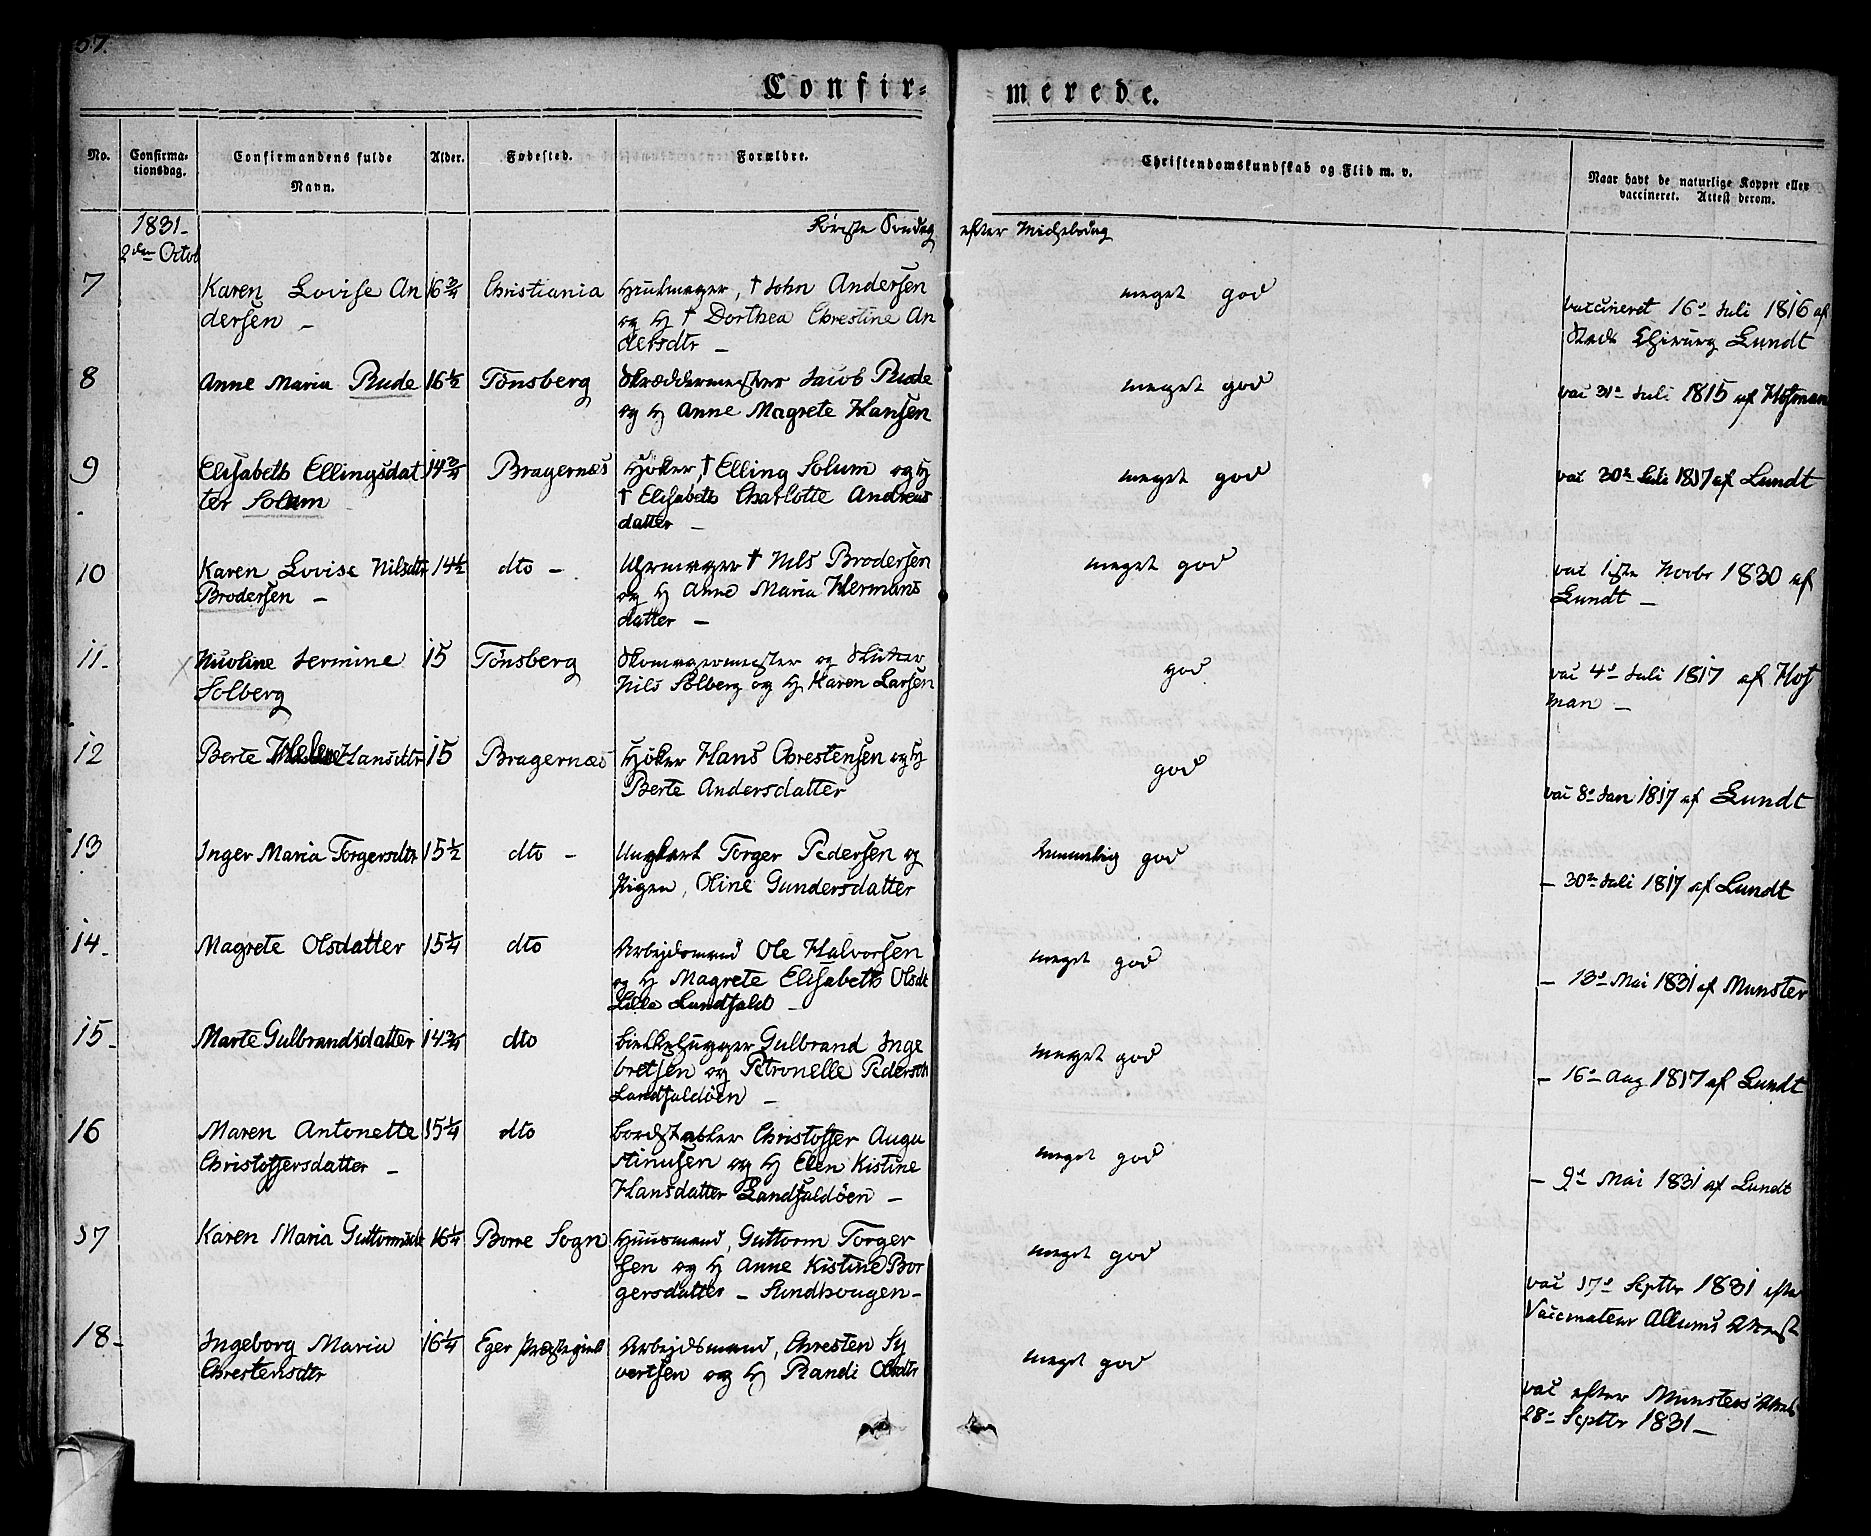 57.
Confir- merede.
No. Confirma- tionsdag. Confirmandens fulde Navn. Alder. Fødested. Forældre. Christendomskundskab og Flid m. v. Naar havt de naturlige Kopper eller vaccineret. Attest derom.
1831 - Første Søndag efter Michelsdag
2den Octob
7 Karen Lovise An 16 3/4 Christiania Hjulmager, † John Andersen meget god vaccineret 16de Juli 1816 af
dersen - og H † Dorthea Chrestine An Stads Chirurg Lundt
dersdtr -
8 Anne Maria Rude 16 1/2 Tønsberg Skræddermester Jacob Rude meget god vac 31te Juli 1815 af Hofman
og H Anne Magrete Hansen
9 Elisabeth Ellingsdat 14 3/4 Bragernæs Høker, † Elling Solum og H meget god vac 30te Juli 1817 af Lundt
ter Solum † Elisabeth Charlotte Andreas
datter -
10 Karen Lovise Nilsdtr 14 1/2 dto - Uhrmager † Nils Brodersen meget god vac 1ste Novbr 1830 af
Brodersen - og H Anne Maria Hermans Lundt -
datter -
11 - Nicoline Jermine 15 Tønsberg Skomagermester og god vac 4de Juli 1817 af Hof
Solberg Nils Solberg og H Karen Larsen man -
12 Berte Helene Hansdtr 15 Bragernæs Høker Hans Chrestensen og H god vac 8de Jan 1817 af Lundt
Berte Andersdatter
13 Inger Maria Torgersdtr 15 1/2 dto - Ungkarl Torger Pedersen og temmelig god - 30te Juli 1817 af Lundt
Pigen, Oline Gundersdatter
14 - Magrete Olsdatter 15 1/4 dto Arbejdsmand Ole Halvorsen meget god - 13de Mai 1831 af Munster
og H Magrete Elisabeth Olsdt
Lille Landfald -
15 - Marte Gulbrandsdatter 14 3/4 dto Bielkehugger Gulbrand Inge meget god - 16de Aug 1817 af Lundt
bretsen og Petronelle Pedersdtr
Landfaldøen -
16 Maren Antonette 15 1/4 dto Bordstabler Christoffer Augu meget god - 9de Mai 1831 af Lundt
Christoffersdatter - stinusen og H Elen Kistine
Hansdatter Landfaldøen -
17 Karen Maria Guttormsdt 16 1/4 Borre Sogn Huusmand, Guttorm Torger meget god vac 17de Septbr 1831 efter
sen og H Anne Kistine Bor Vaccinateur Allums Attest
gersdatter - Sundhougen -
18 - Ingeborg Maria 16 1/4 Eger Præstegield Arbejdsmand, Chresten Sy meget god vac efter Munsters Attest
Chrestensdtr vertsen og H Randi Olsdtr 28de Septbr 1831 -